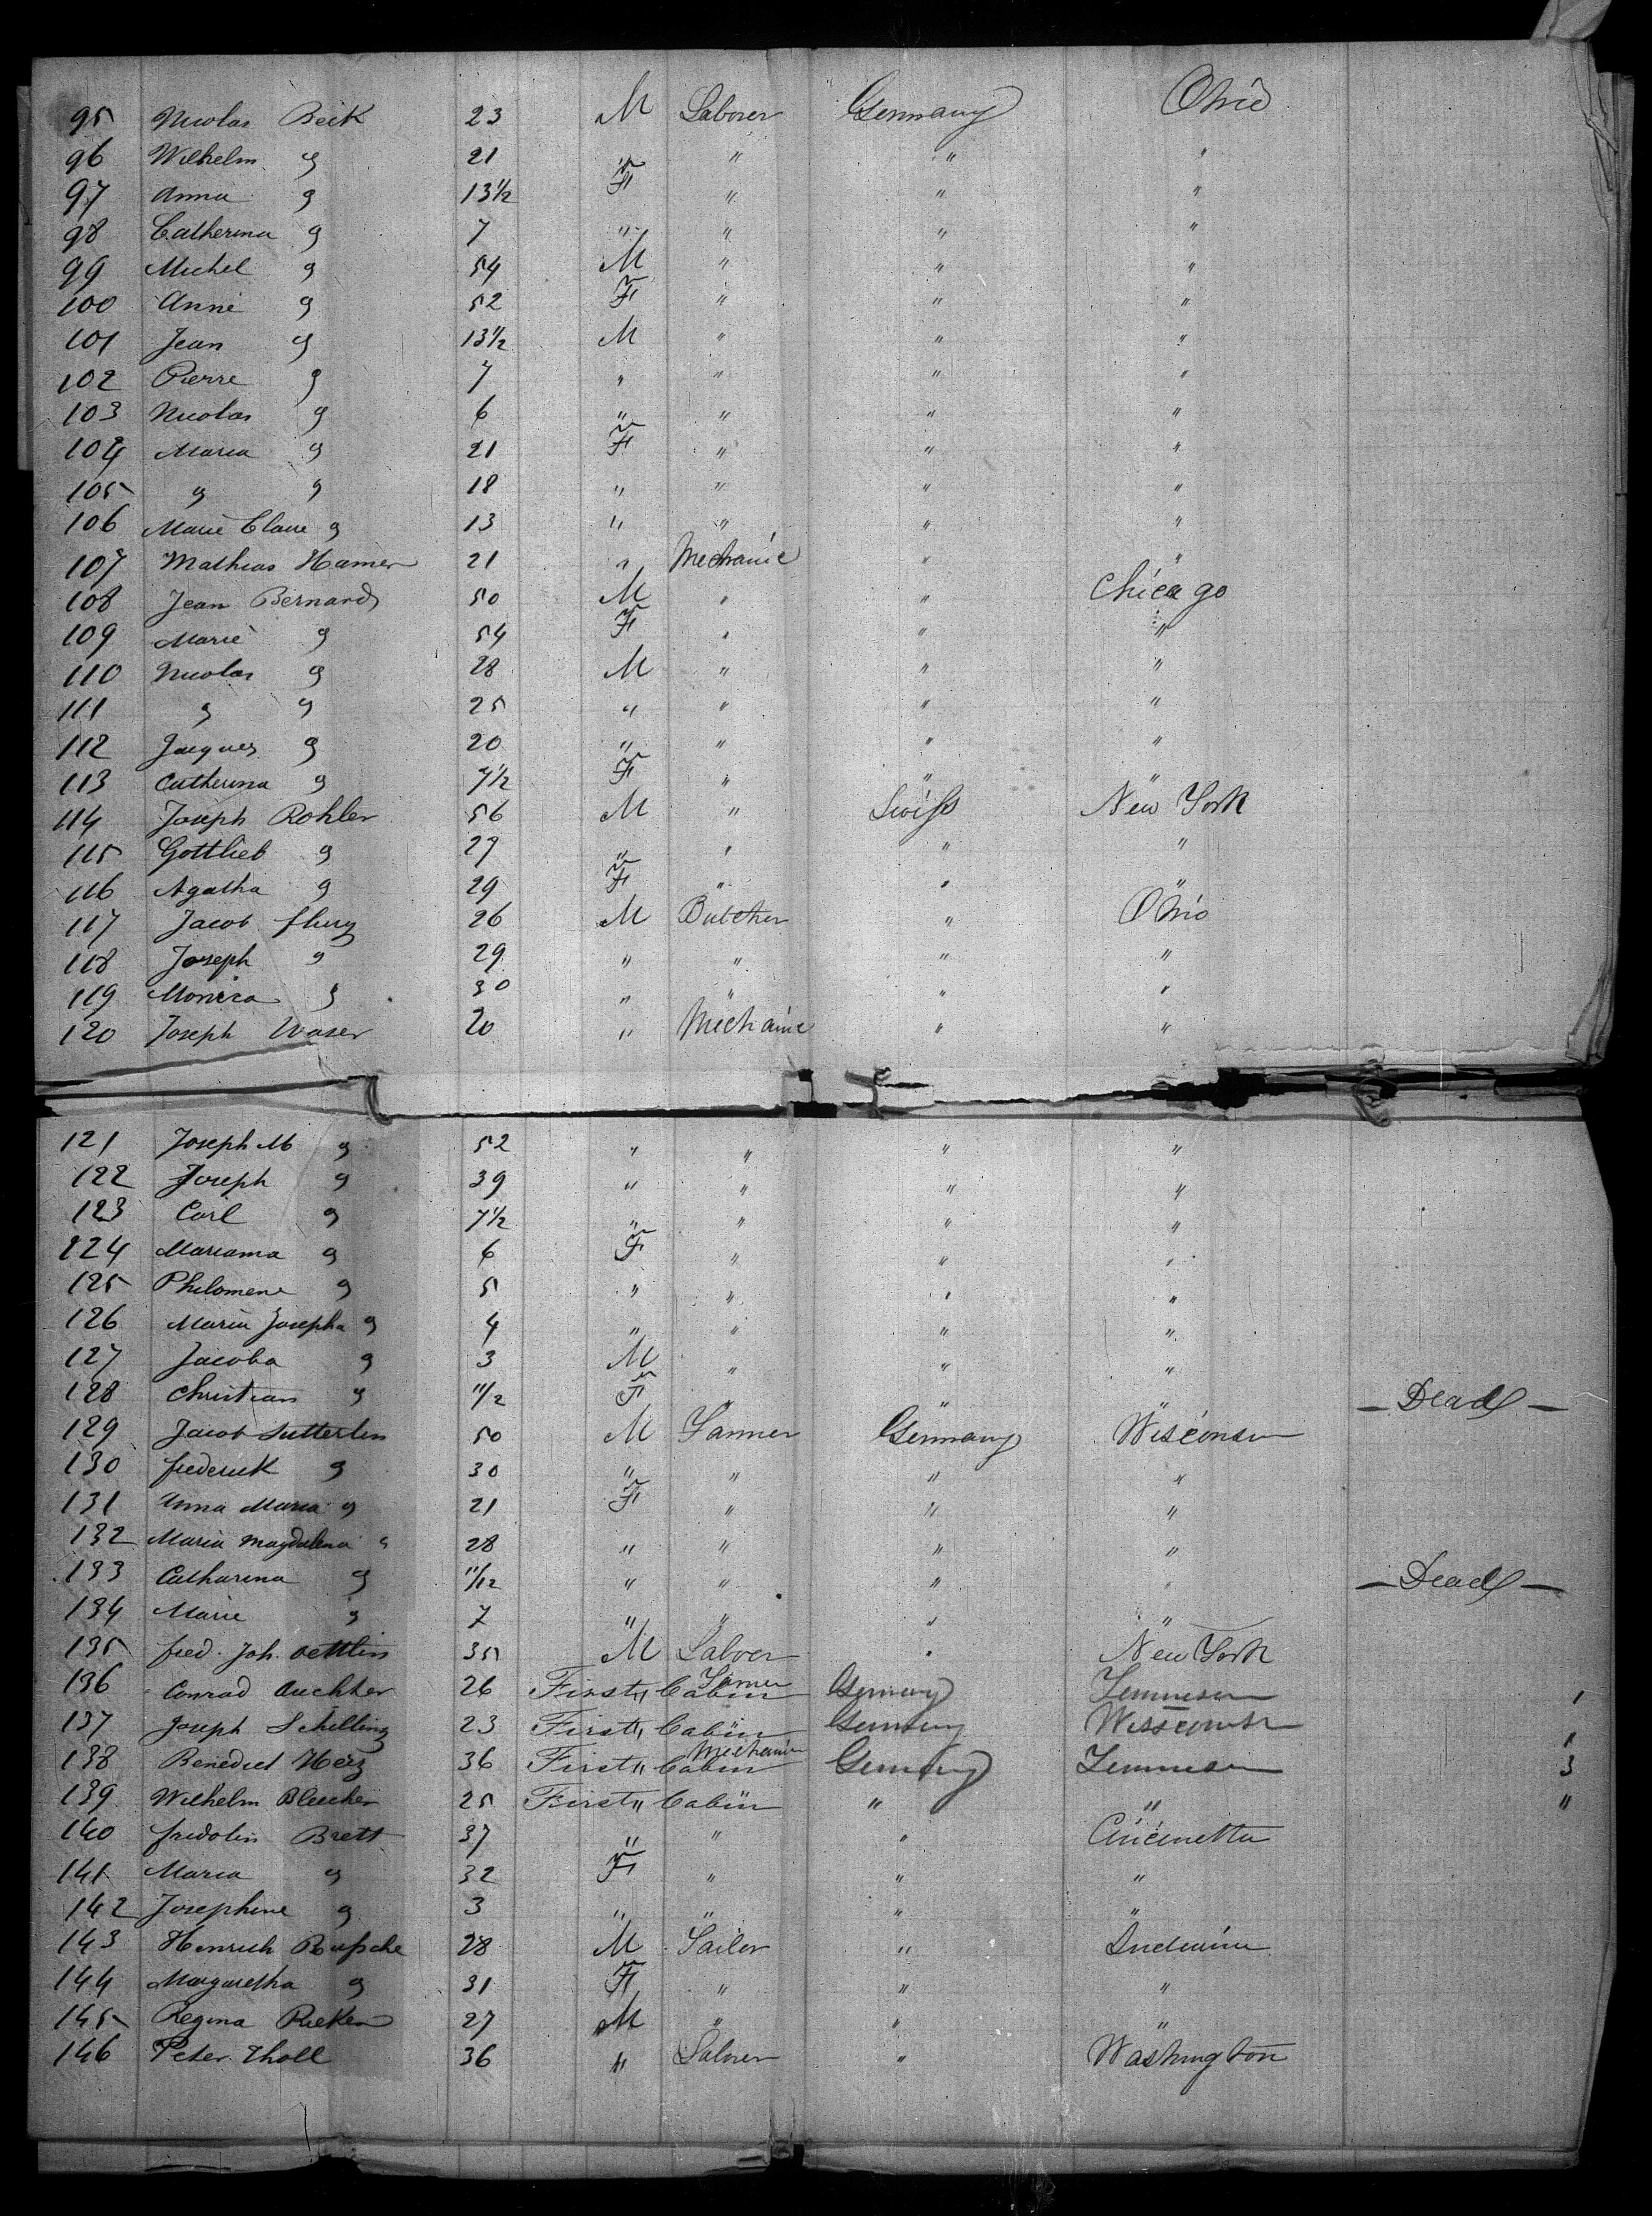 95 Nicolas Beck 23 M Laborer Germany Ohio
96 Wilhelm " 21 " " " "
97 Anna " 13 1/2 F " " "
98 Catherina " 7 " " " "
99 Michel " 54 M " " "
100 Anne " 52 F " " "
101 Jean " 13 1/2 M " " "
102 Pierre " 7 " " " "
103 Nicolas " 6 " " " "
104 Maria " 21 F " " "
105 " " 18 " " " "
106 Marie Claire " 13 " " " "
107 Mathias Hamer 21 " Mechanic " "
108 Jean Bernard 50 M " " Chicago
109 Marie " 54 F " " "
110 Nicolas " 28 M " " "
111 " " 25 " " " "
112 Jacques " 20 " " " "
113 Catherina " 7 1/2 F " " "
114 Joseph Rohler 56 M " Swiss New York
115 Gottlieb " 27 " " " "
116 Agatha " 29 F " " "
117 Jacob flury 26 M Butcher " Ohio
118 Joseph " 29 " " " "
119 Monica " 30 " " " "
120 Joseph Waser 20 " Mechanic " "
121 Joseph M " 52 " " " "
122 Joseph " 39 " " " "
123 Carl " 7 1/2 " " " "
124 Mariama " 6 F " " "
125 Philomene " 5 " " " "
126 Maria Josepha " 4 " " " "
127 Jacoba " 3 M " " "
128 Christian " 1 1/2 F " " " — Dead —
129 Jacob Sutterlin 50 M Farmer Germany Wisconsin
130 frederick " 30 " " " "
131 Anna Maria " 21 F " " "
132 Maria Magdalena " 28 " " " "
133 Catharina " 11/12 " " " " — Dead —
134 Marie " 7 " " " "
135 fred. Joh. Oettlin 35 M Labor " New York
136 Conrad 26 First " Cabin Farmer Germany 1
137 Joseph Schilling 23 First " Cabin Germany Wisconsin 1
138 Benedict Herz 36 First " Cabin Mechanic Germany 3
139 Wilhelm Bleicher 25 First " Cabin " " "
140 fridolin Brett 37 " " " Cincinetta
141 Maria " 32 F " " "
142 Josephine " 3 " " " "
143 Henrich 28 M Sailor " Indiana
144 Margaretha " 31 F " " "
145 Regina Rieken 27 M " " "
146 Peter Tholl 36 " Laborer " Washington